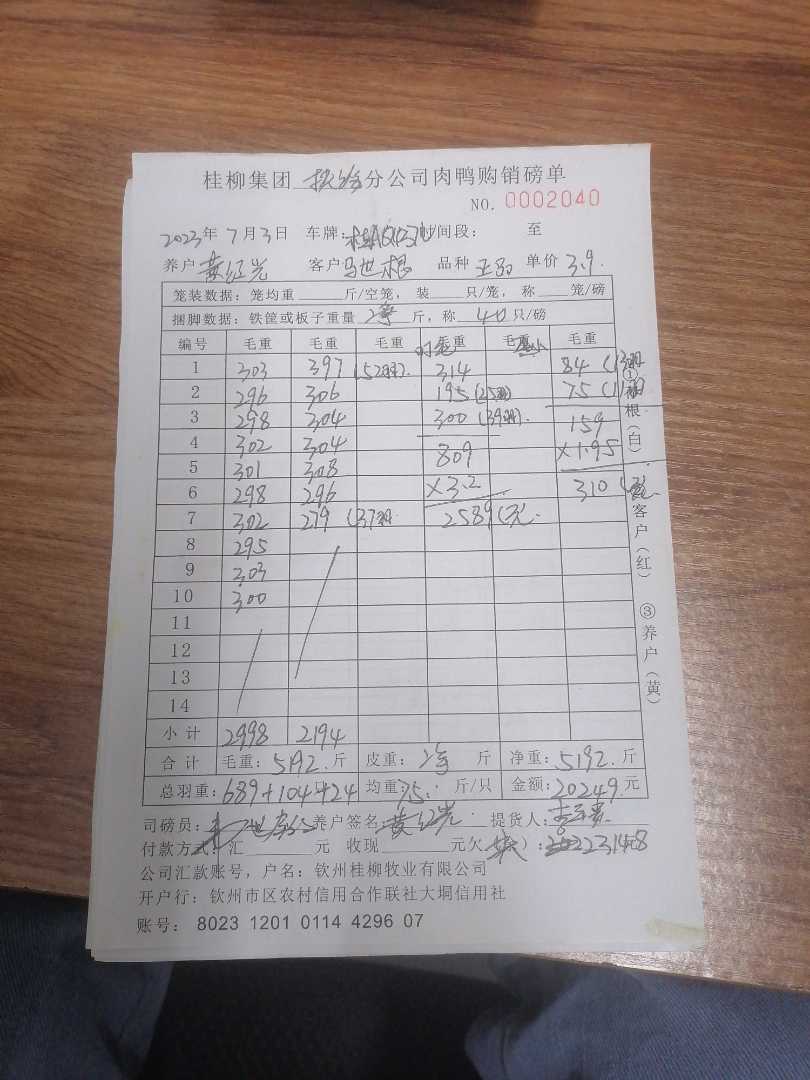 桂柳集团 分公司肉鸭购销磅单
NO. 0002040
2023年 7月3日 车牌: 时间段: 至
养户 黄红光 客户 马世根 品种 单价 3.9
笼装数据: 笼均重 斤/空笼, 装 只/笼, 称 笼/磅
捆脚数据: 铁筐或板子重量 净 斤, 称 40 只/磅
编号 毛重 毛重 毛重 毛重 毛重 毛重
1 303 397 (52羽). 314 84 (13羽
2 296 306 195 (25羽) 75 (11羽)
3 298 304 300 (39羽). 159
4 302 304 809 ×1.95
5 301 308
6 298 296 ×3.2 310 (元
7 302 279 (37羽 2589 (元.
8 295
9 303
10 300
11
12
13
14
小计 2998 2194
合计 毛重: 5192. 斤 皮重: 净 斤 净重: 5192. 斤
总羽重: 689+104+24 均重: 7.5. 斤/只 金额: 20249. 元
司磅员: 养户签名 黄红光 提货人:
付款方式: 汇 元 收现 元欠 ): 23148
公司汇款账号, 户名: 钦州桂柳牧业有限公司
开户行: 钦州市区农村信用合作联社大垌信用社
账号: 8023 1201 0114 4296 07
① 根(白)
客户(红)
③养户(黄)